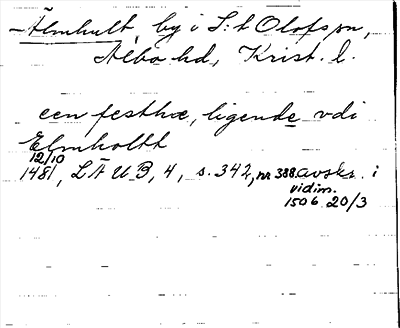 Älmhult, by i S:t Olofs sn,
Albo hd, Krist. l.
een festhæ, ligende vdi
Elmholtt
12/10
1481, LÄUB, 4, s. 342, nr 388. avskr. i
vidim.
1506 20/3